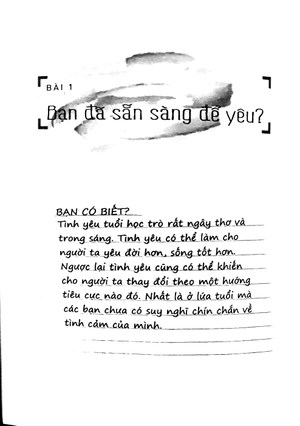 BÀI 1
Bạn đã sẵn sàng để yêu?
BẠN CÓ BIẾT?
Tình yêu tuổi học trò rất ngây thơ và
trong sáng. Tình yêu có thể làm cho
người ta yêu đời hơn, sống tốt hơn.
Ngược lại tình yêu cũng có thể khiến
cho người ta thay đổi theo một hướng
tiêu cực nào đó. Nhất là ở lứa tuổi mà
các bạn chưa có suy nghĩ chín chắn về
tình cảm của mình.